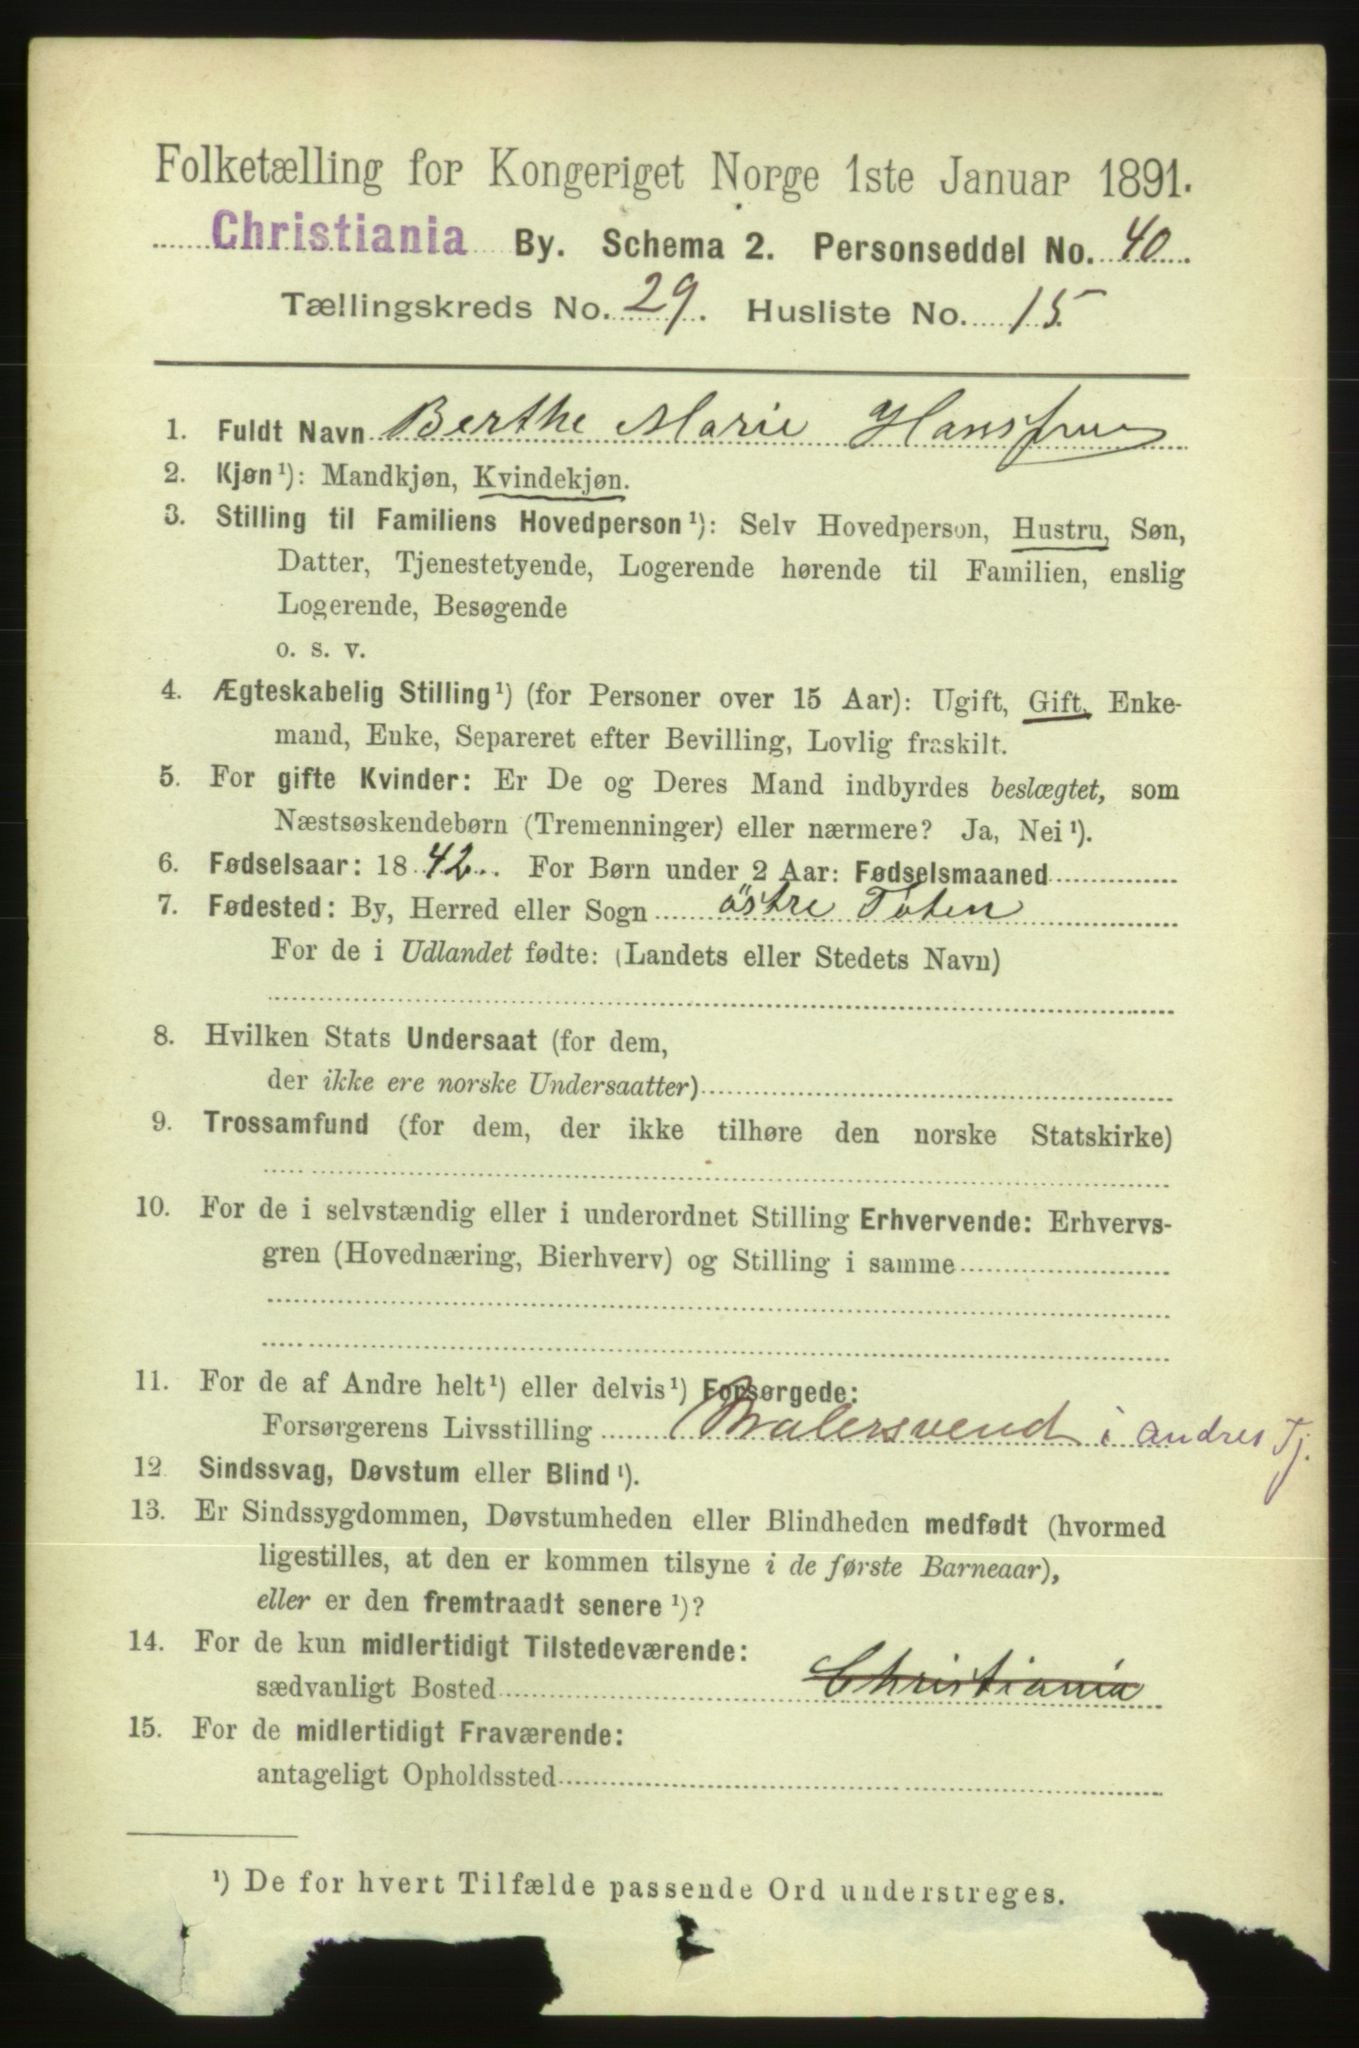 Folketælling for Kongeriget Norge 1ste Januar 1891.
Christiania By. Schema 2. Personseddel No. 40.
Tællingskreds No. 29. Husliste No. 15.
1. Fuldt Navn Berthe Marie Hansfrue
2. Kjøn¹): Mandkjøn, Kvindekjøn.
3. Stilling til Familiens Hovedperson¹): Selv Hovedperson, Hustru, Søn,
Datter, Tjenestetyende, Logerende hørende til Familien, enslig
Logerende, Besøgende
o. s. v.
4. Ægteskabelig Stilling¹) (for Personer over 15 Aar): Ugift, Gift, Enke-
mand, Enke, Separeret efter Bevilling, Lovlig fraskilt.
5. For gifte Kvinder: Er De og Deres Mand indbyrdes beslægtet, som
Næstsøskendebørn (Tremenninger) eller nærmere? Ja, Nei¹).
6. Fødselsaar: 1842. For Børn under 2 Aar: Fødselsmaaned
7. Fødested: By, Herred eller Sogn östre Toten
For de i Udlandet fødte: (Landets eller Stedets Navn)
8. Hvilken Stats Undersaat (for dem,
der ikke ere norske Undersaatter)
9. Trossamfund (for dem, der ikke tilhøre den norske Statskirke)
10. For de i selvstændig eller i underordnet Stilling Erhvervende: Erhvervs-
gren (Hovednæring, Bierhverv) og Stilling i samme
11. For de af Andre helt¹) eller delvis¹) Forsørgede:
Forsørgerens Livsstilling Malersvend i andres Tj.
12. Sindssvag, Døvstum eller Blind¹).
13. Er Sindssygdommen, Døvstumheden eller Blindheden medfødt (hvormed
ligestilles, at den er kommen tilsyne i de første Barneaar),
eller er den fremtraadt senere¹)?
14. For de kun midlertidigt Tilstedeværende:
sædvanligt Bosted Christiania
15. For de midlertidigt Fraværende:
antageligt Opholdssted
¹) De for hvert Tilfælde passende Ord understreges.